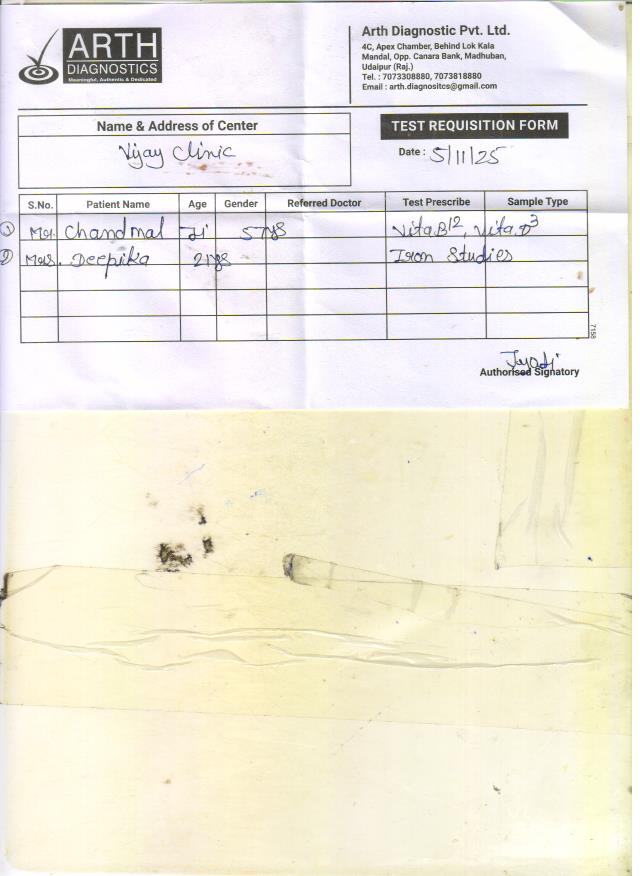 ARTH
DIAGNOSTICS
Meaningful, Authentic & Dedicated
Arth Diagnostic Pvt. Ltd.
4C, Apex Chamber, Behind Lok Kala
Mandal, Opp. Canara Bank, Madhuban,
Udaipur (Raj.)
Tel. : 7073308880, 7073818880
Email : arth.diagnositcs@gmail.com
Name & Address of Center
Vijay Clinic
TEST REQUISITION FORM
Date : 5/11/25
S.No. Patient Name Age Gender Referred Doctor Test Prescribe Sample Type
① Mr. Chandmal Ji 57ys Vita B12, Vita D3
② Mrs. Deepika 21ys Iron Studies
7158
Authorised Signatory